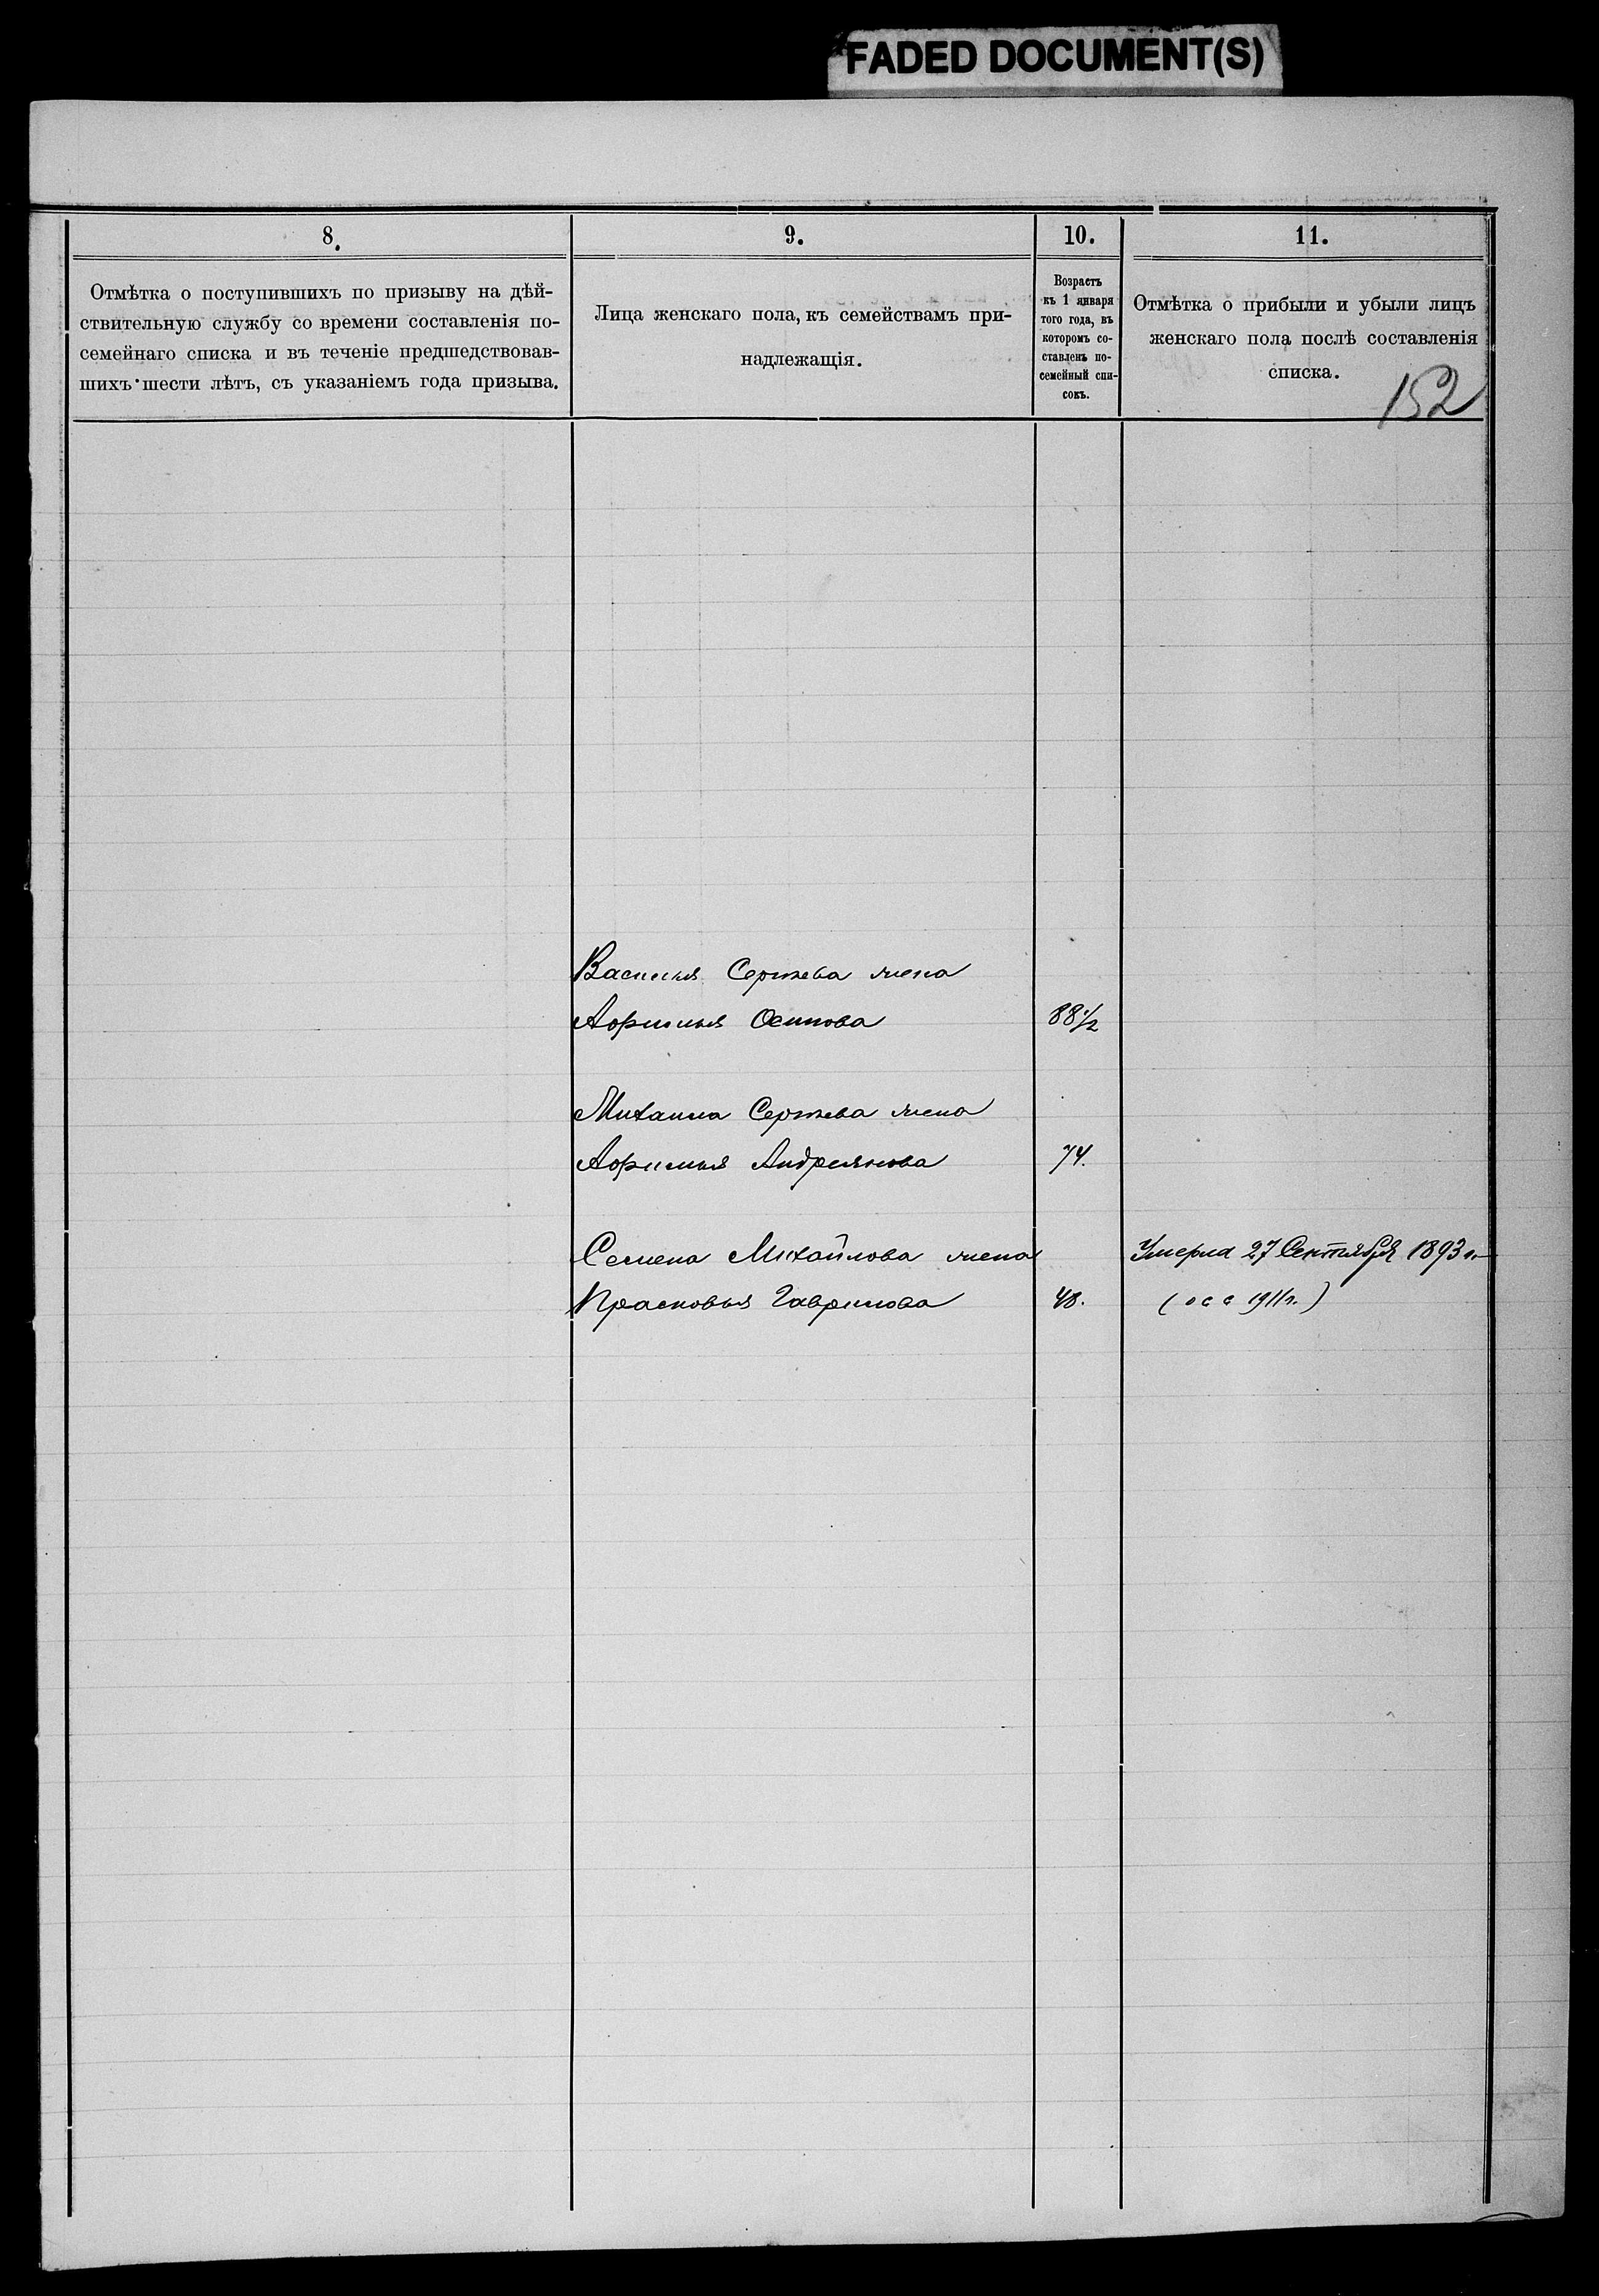 FADED DOCUMENT(S)
8.
Отмѣтка о поступившихъ по призыву на дѣй-
ствительную службу со времени составленія по-
семейнаго списка и въ теченіе предшедствовав-
шихъ шести лѣтъ, съ указаніемъ года призыва.
9.
Лица женскаго пола, къ семействамъ при-
надлежащія.
10.
Возрастъ
къ 1 января
того года, въ
которомъ со-
ставленъ по-
семейный спи-
сокъ.
11.
Отмѣтка о прибыли и убыли лицъ
женскаго пола послѣ составленія
списка.
152
Василья Сергѣева жена
Осипова 88 1/2
Михаила Сергѣева жена
Андреянова 74.
Семена Михайлова жена Умерла 27 Сентября 1893 г.
Прасковья Гаврилова 48. 1911 г.)